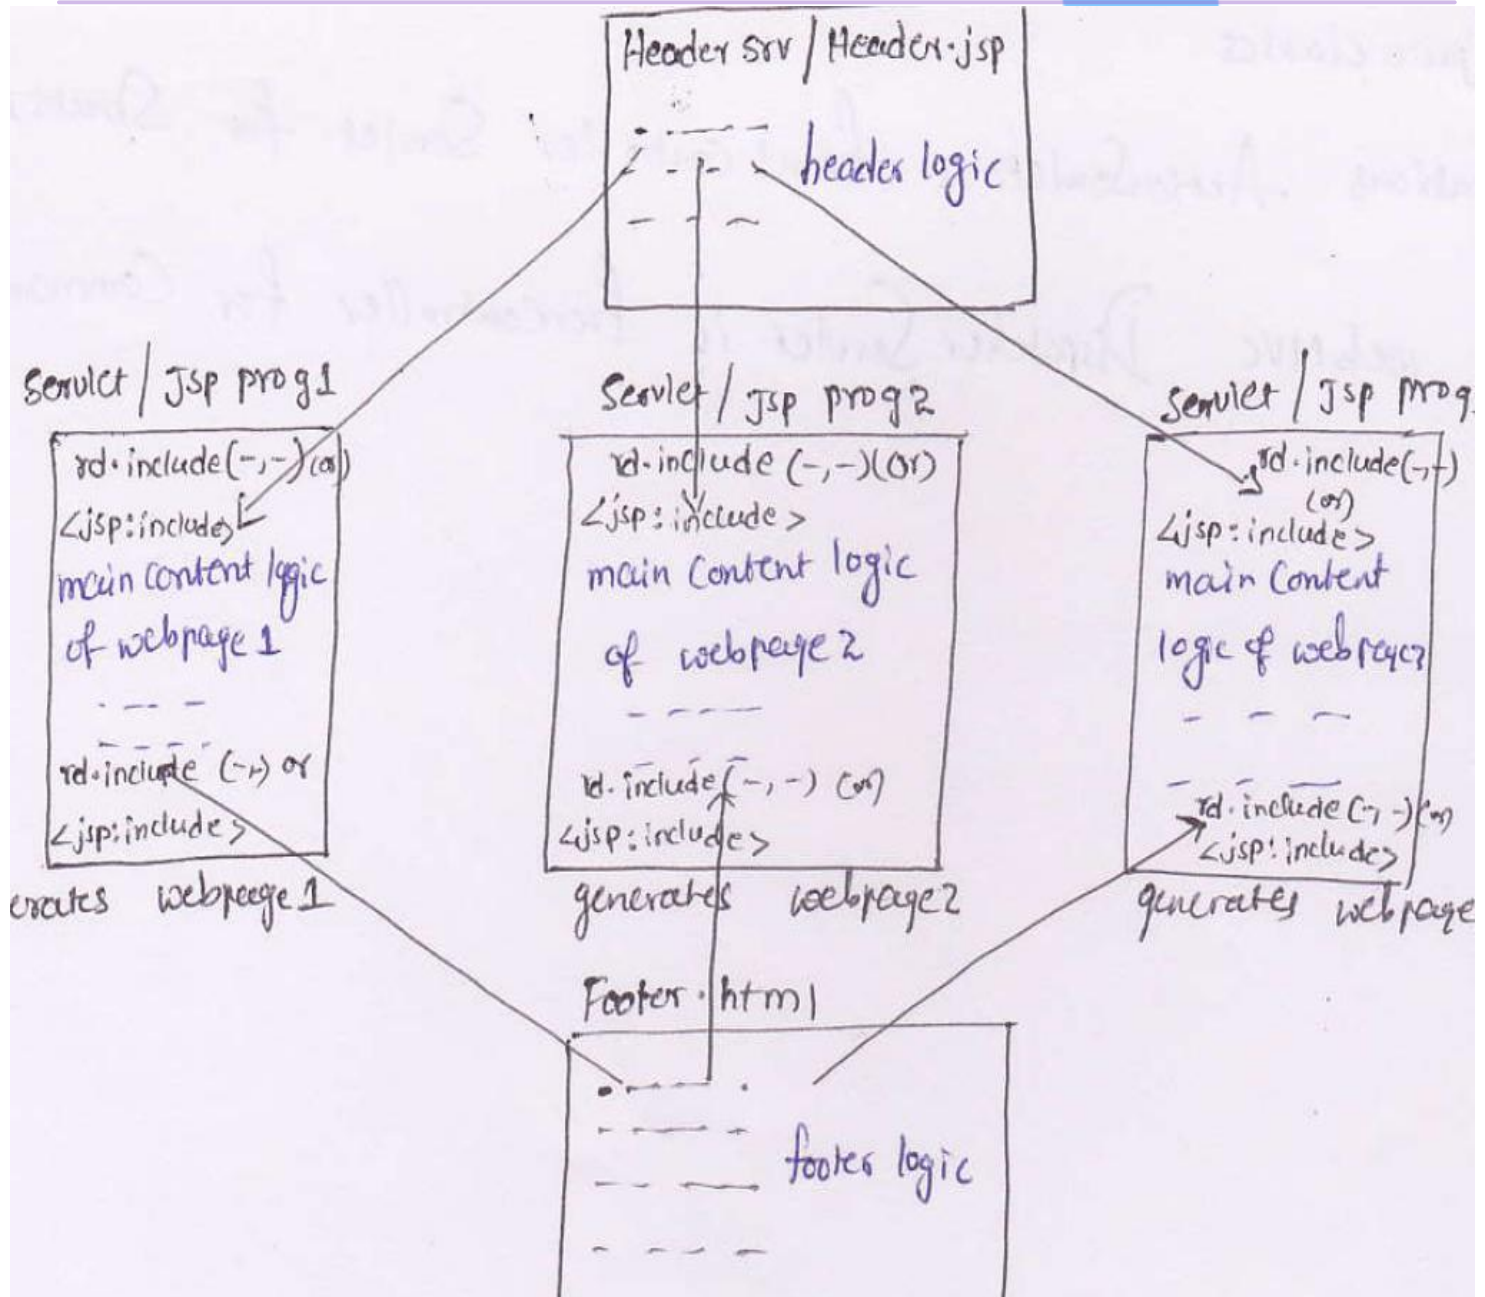 Header srv / Header.jsp
header logic
Servlet / Jsp prog1
rd.include(-,-)(or)
<jsp:include>
main content logic
of webpage 1
rd.include (-,-) or
<jsp:include>
erates webpage 1
Servlet / Jsp prog2
rd.include (-,-)(or)
<jsp:include>
main Content logic
of webpage 2
rd.include(-,-) (or)
<jsp:include>
generates webpage2
Servlet / Jsp prog
rd.include(-,-)
(or)
<jsp:include>
main Content
logic of
rd.include(-,-)(or)
<jsp:include>
generates webpage
Footer.html
footer logic